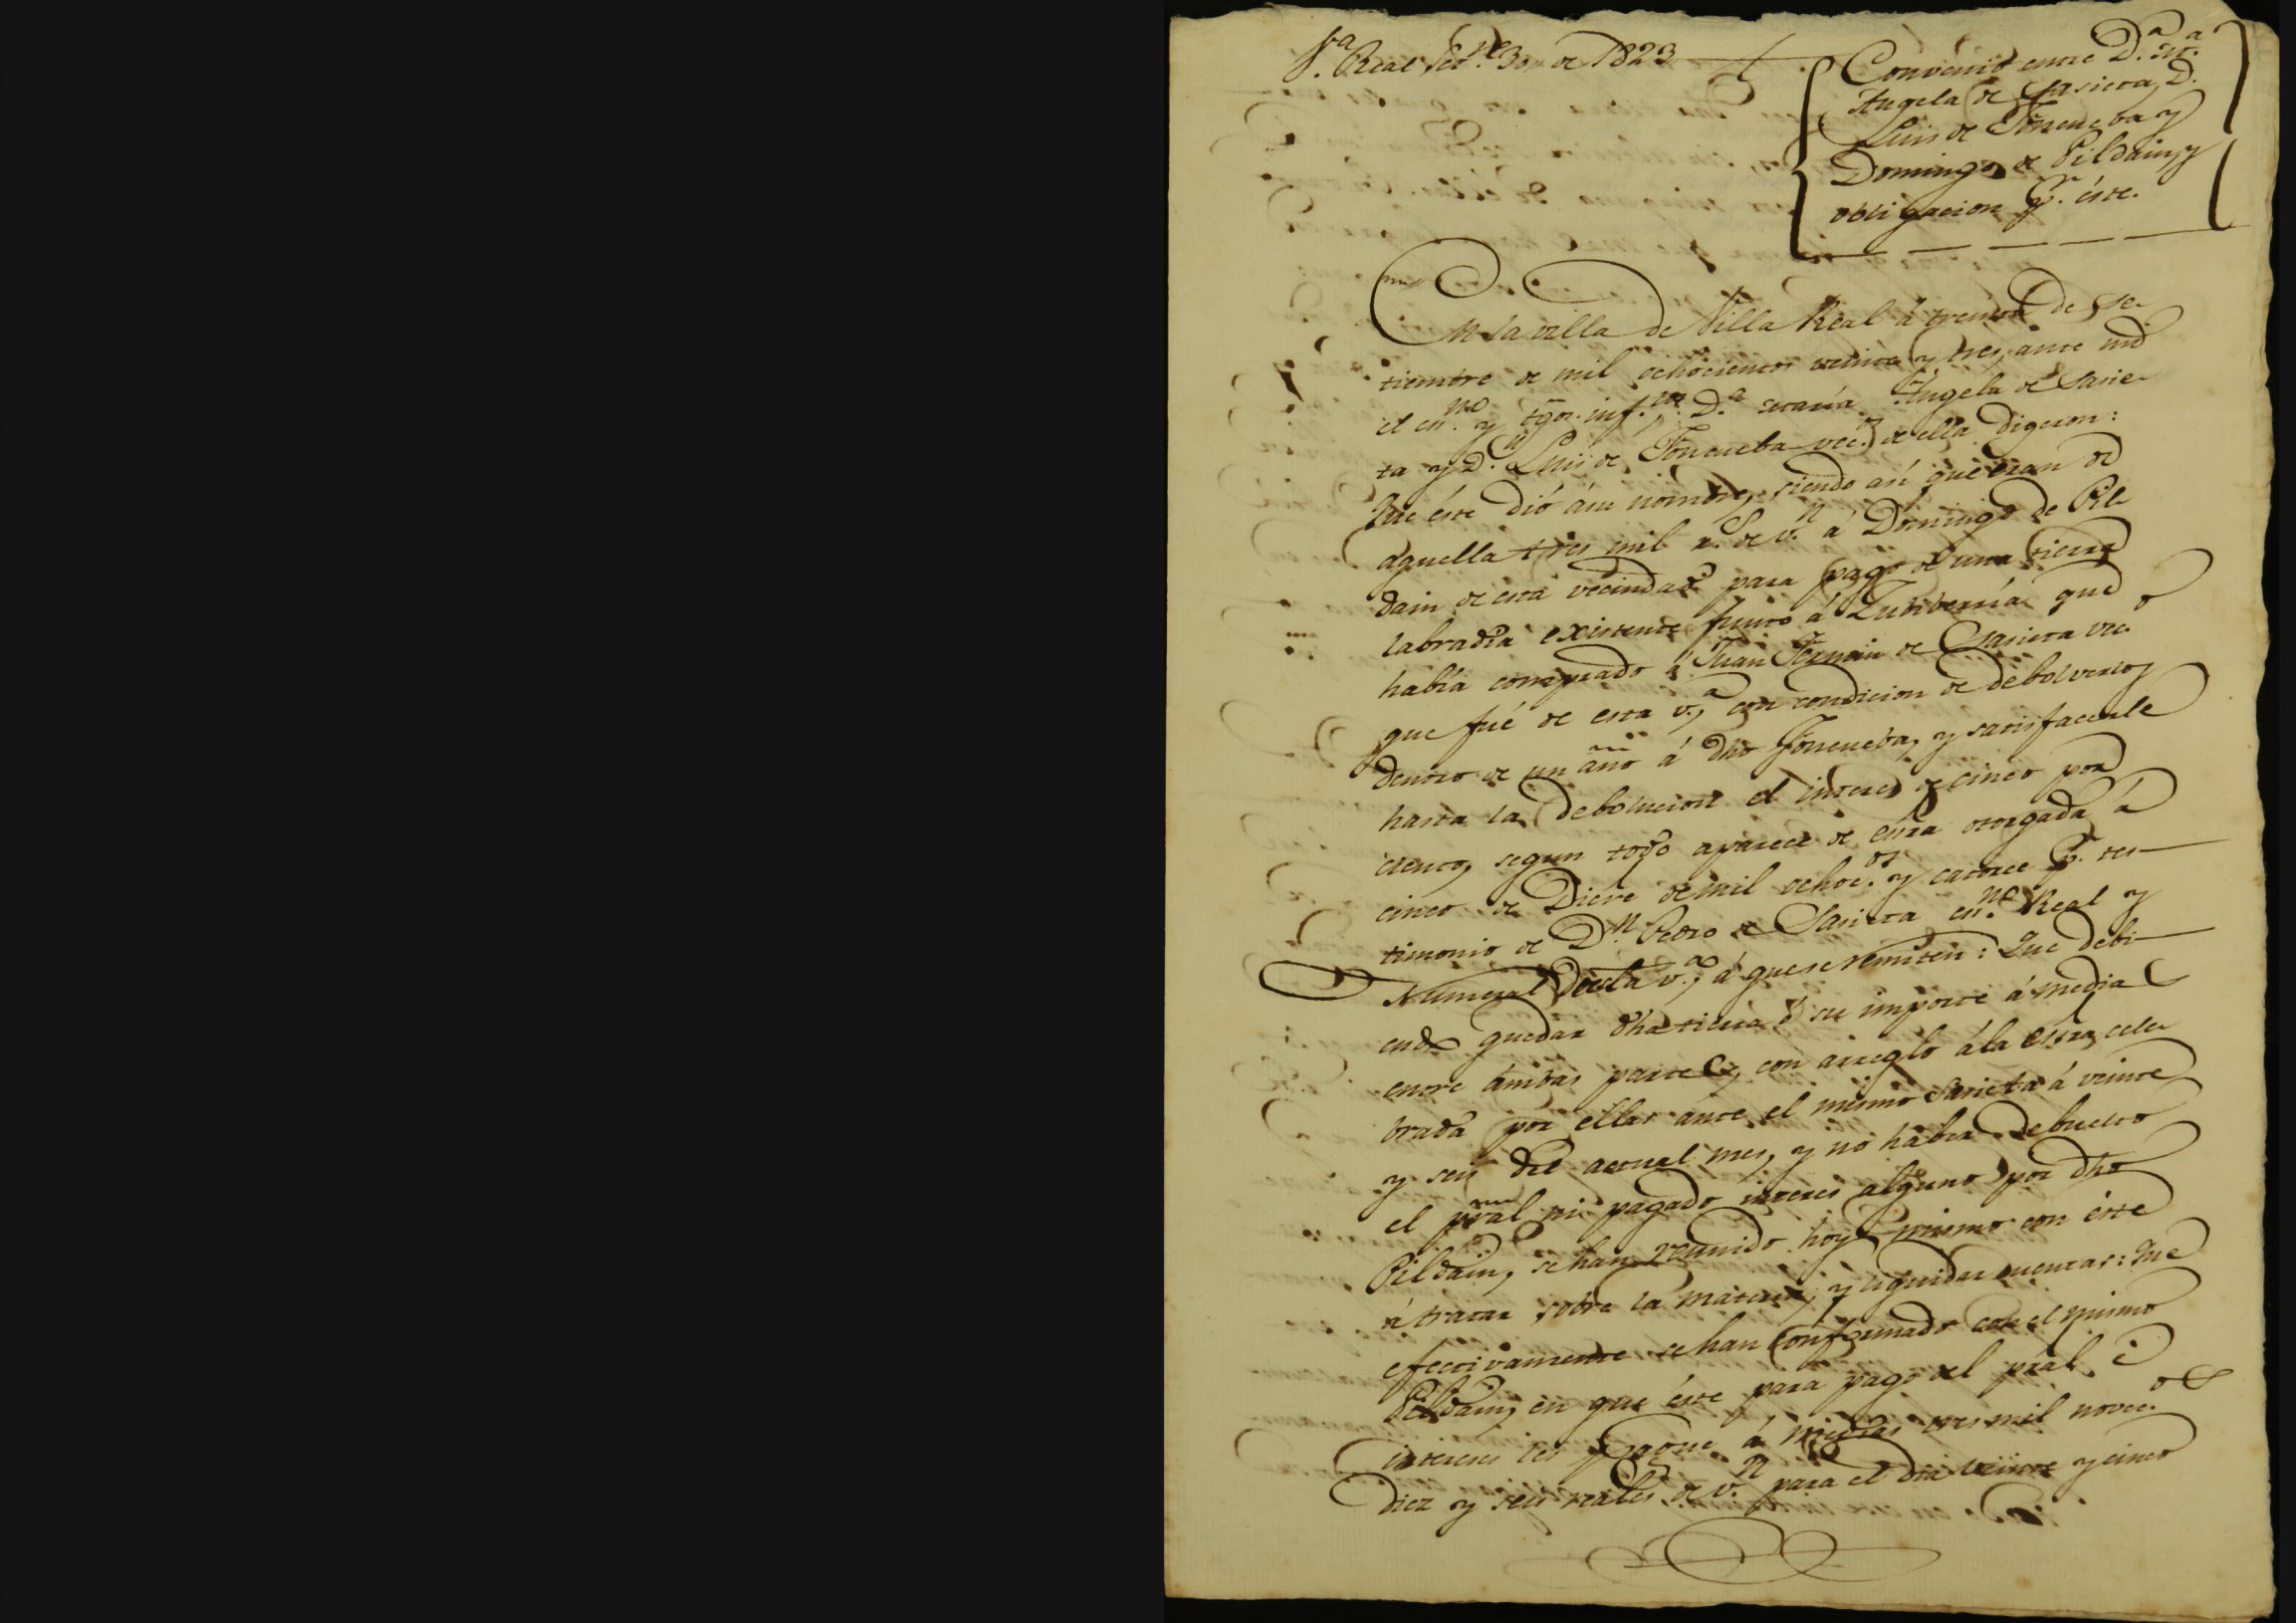 V.ª Real Set.re 30 de 1823
Convenio entre D.ª M.ª
Angela de Sasieta, D.
Luis de Torrueba y
Domingo de Pildain, y
obligacion p.r éste.
En la villa de Villa Real á treinta de Se-
tiembre de mil ochocientos veinte y tres, ante mi
el es.no y tgos. inf.tos D.ª Maria Angela de Sasie-
ta y D.n Luis de Torrueba vec.s de ella digeron:
Que éste dió á su nombre, siendo así que eran de
aquella tres mil r.s de v.n á Domingo de Pil-
dain de esta vecindad para pago de una tierra
labradía existente junto á Zubiberría que
había comprado á Juan Fermin de Sasieta vec.o
que fué de esta v.ª, con condicion de debolverlos
dentro de un año á dho Torrueba, y satisfacerle
hasta la debolucion el interes de cinco por
ciento, segun todo aparece de esra otorgada á
cinco de Dicre de mil ochoc.os y catorce p.r tes-
timonio de D.n Pedro de Sasieta es.no Real y
Numeral de esta v.ª, á que se remiten: Que debi-
endo quedar dha tierra ó su importe á media
entre ámbas partes, con arreglo á la esra cele-
brada por ellas ante el mismo Sasieta á veinte
y seis del actual mes, y no haber debuelto
el pral ni pagado interes alguno por dho
Pildain, se han reunido hoy mismo con éste
á tratar sobre la materia, y liquidar cuentas: Que
efectivamente se han conformado con el mismo
Pildain, en que éste para pago del pral é
intereses les pague á médias tres mil novec.os
diez y seis reales de v.n para el dia veinte y cinco